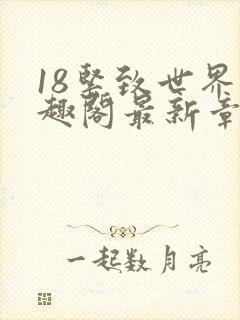 18竖致世界
趣阁最新章
一起数月亮